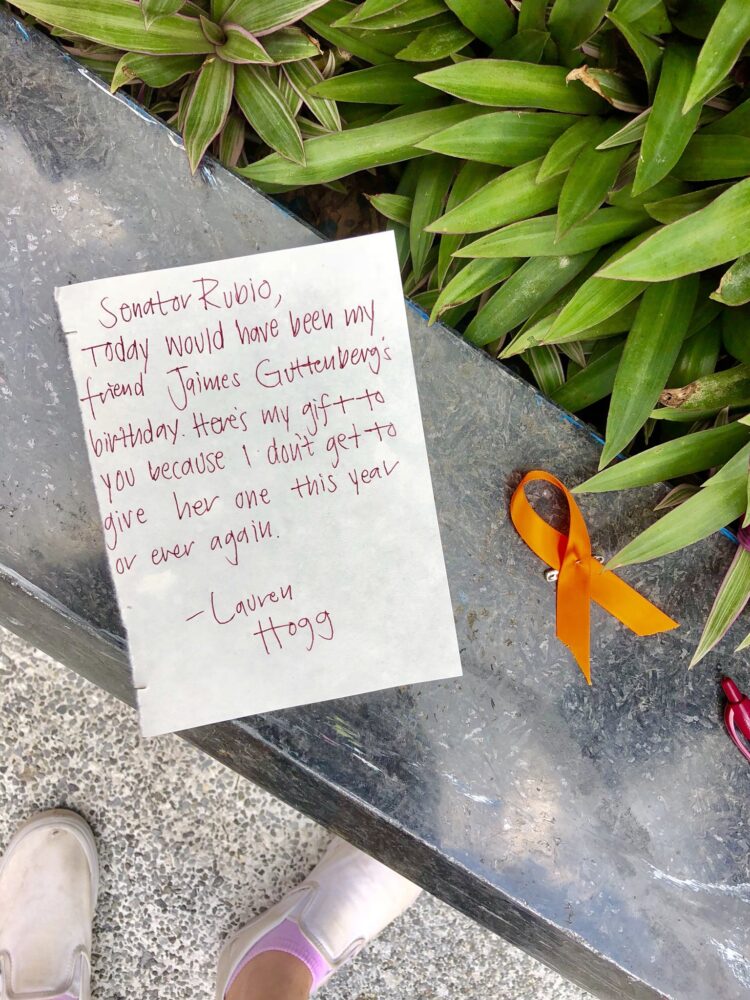 Senator Rubio,
Today would have been my
friend Jaimes Guttenberg's
birthday. Here's my gift to
you because I don't get to
give her one this year
or ever again.
-Lauren
Hogg